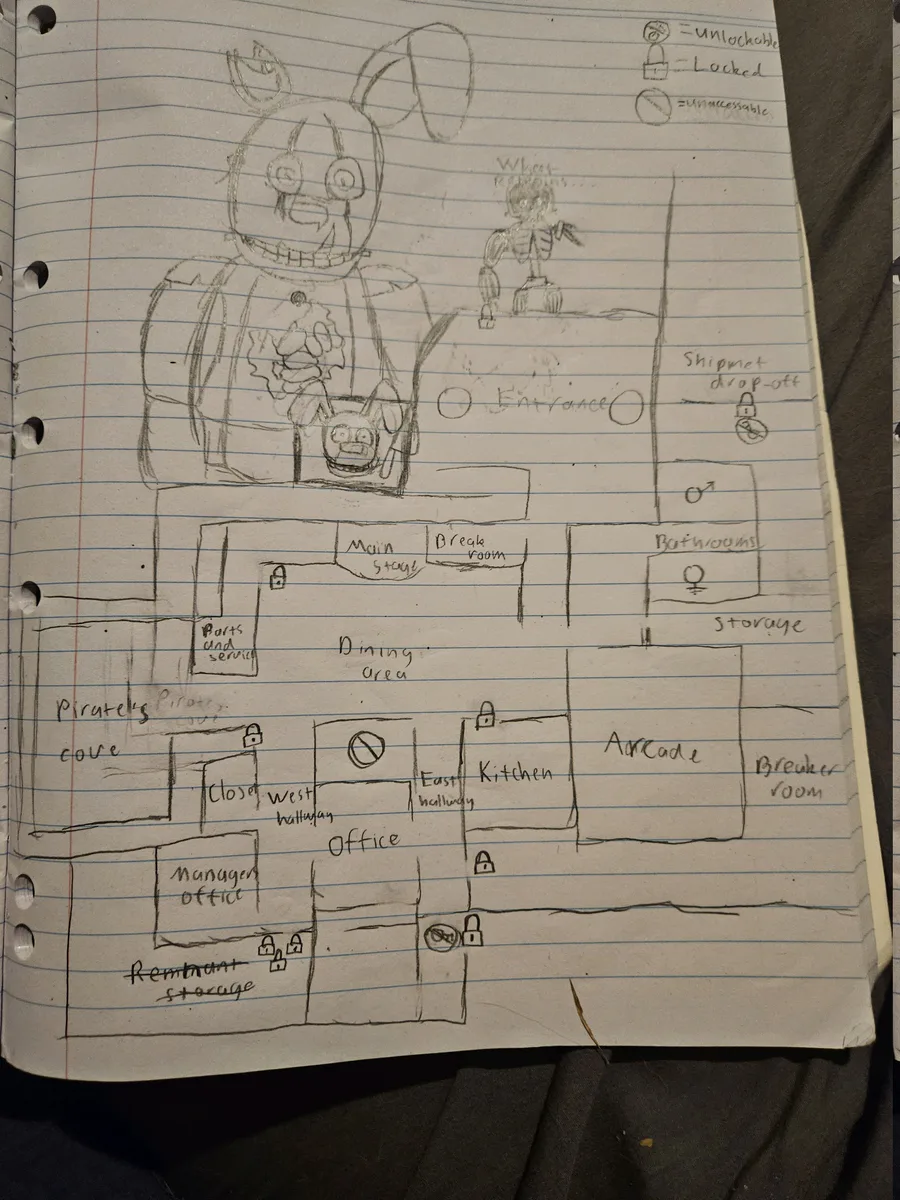 =unlockable
=Locked
=unaccessable
What
Remains...
Shipmet
drop-off
Entrance
Main
stage
Break
room
Bathrooms
Parts
and
service
Dining
area
storage
Pirate's
cove
Pirate's
cove
Closet
West
hallway
East
hallway
Kitchen
Arcade
Breaker
room
Office
Manager
office
Remnant
storage